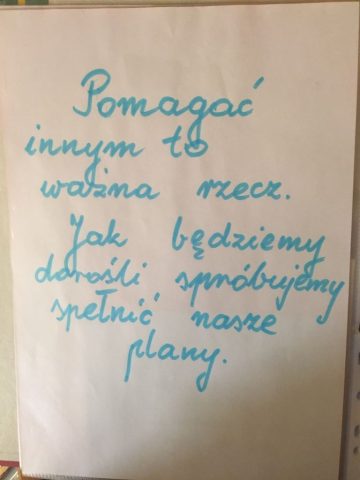 Pomagać
innym to
ważna rzecz.
Jak będziemy
dorośli spróbujemy
spełnić nasze
plany.